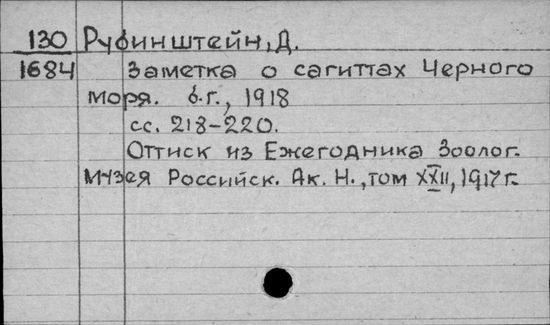 130 Рубинштейн, Д.
1684 Заметка о сагиттах Черного
моря. б.г., 1918
сс. 218-220.
Оттиск из Ежегодника Зоолог.
Музея Российск. Ак. Н., том XXII, 1917 г.